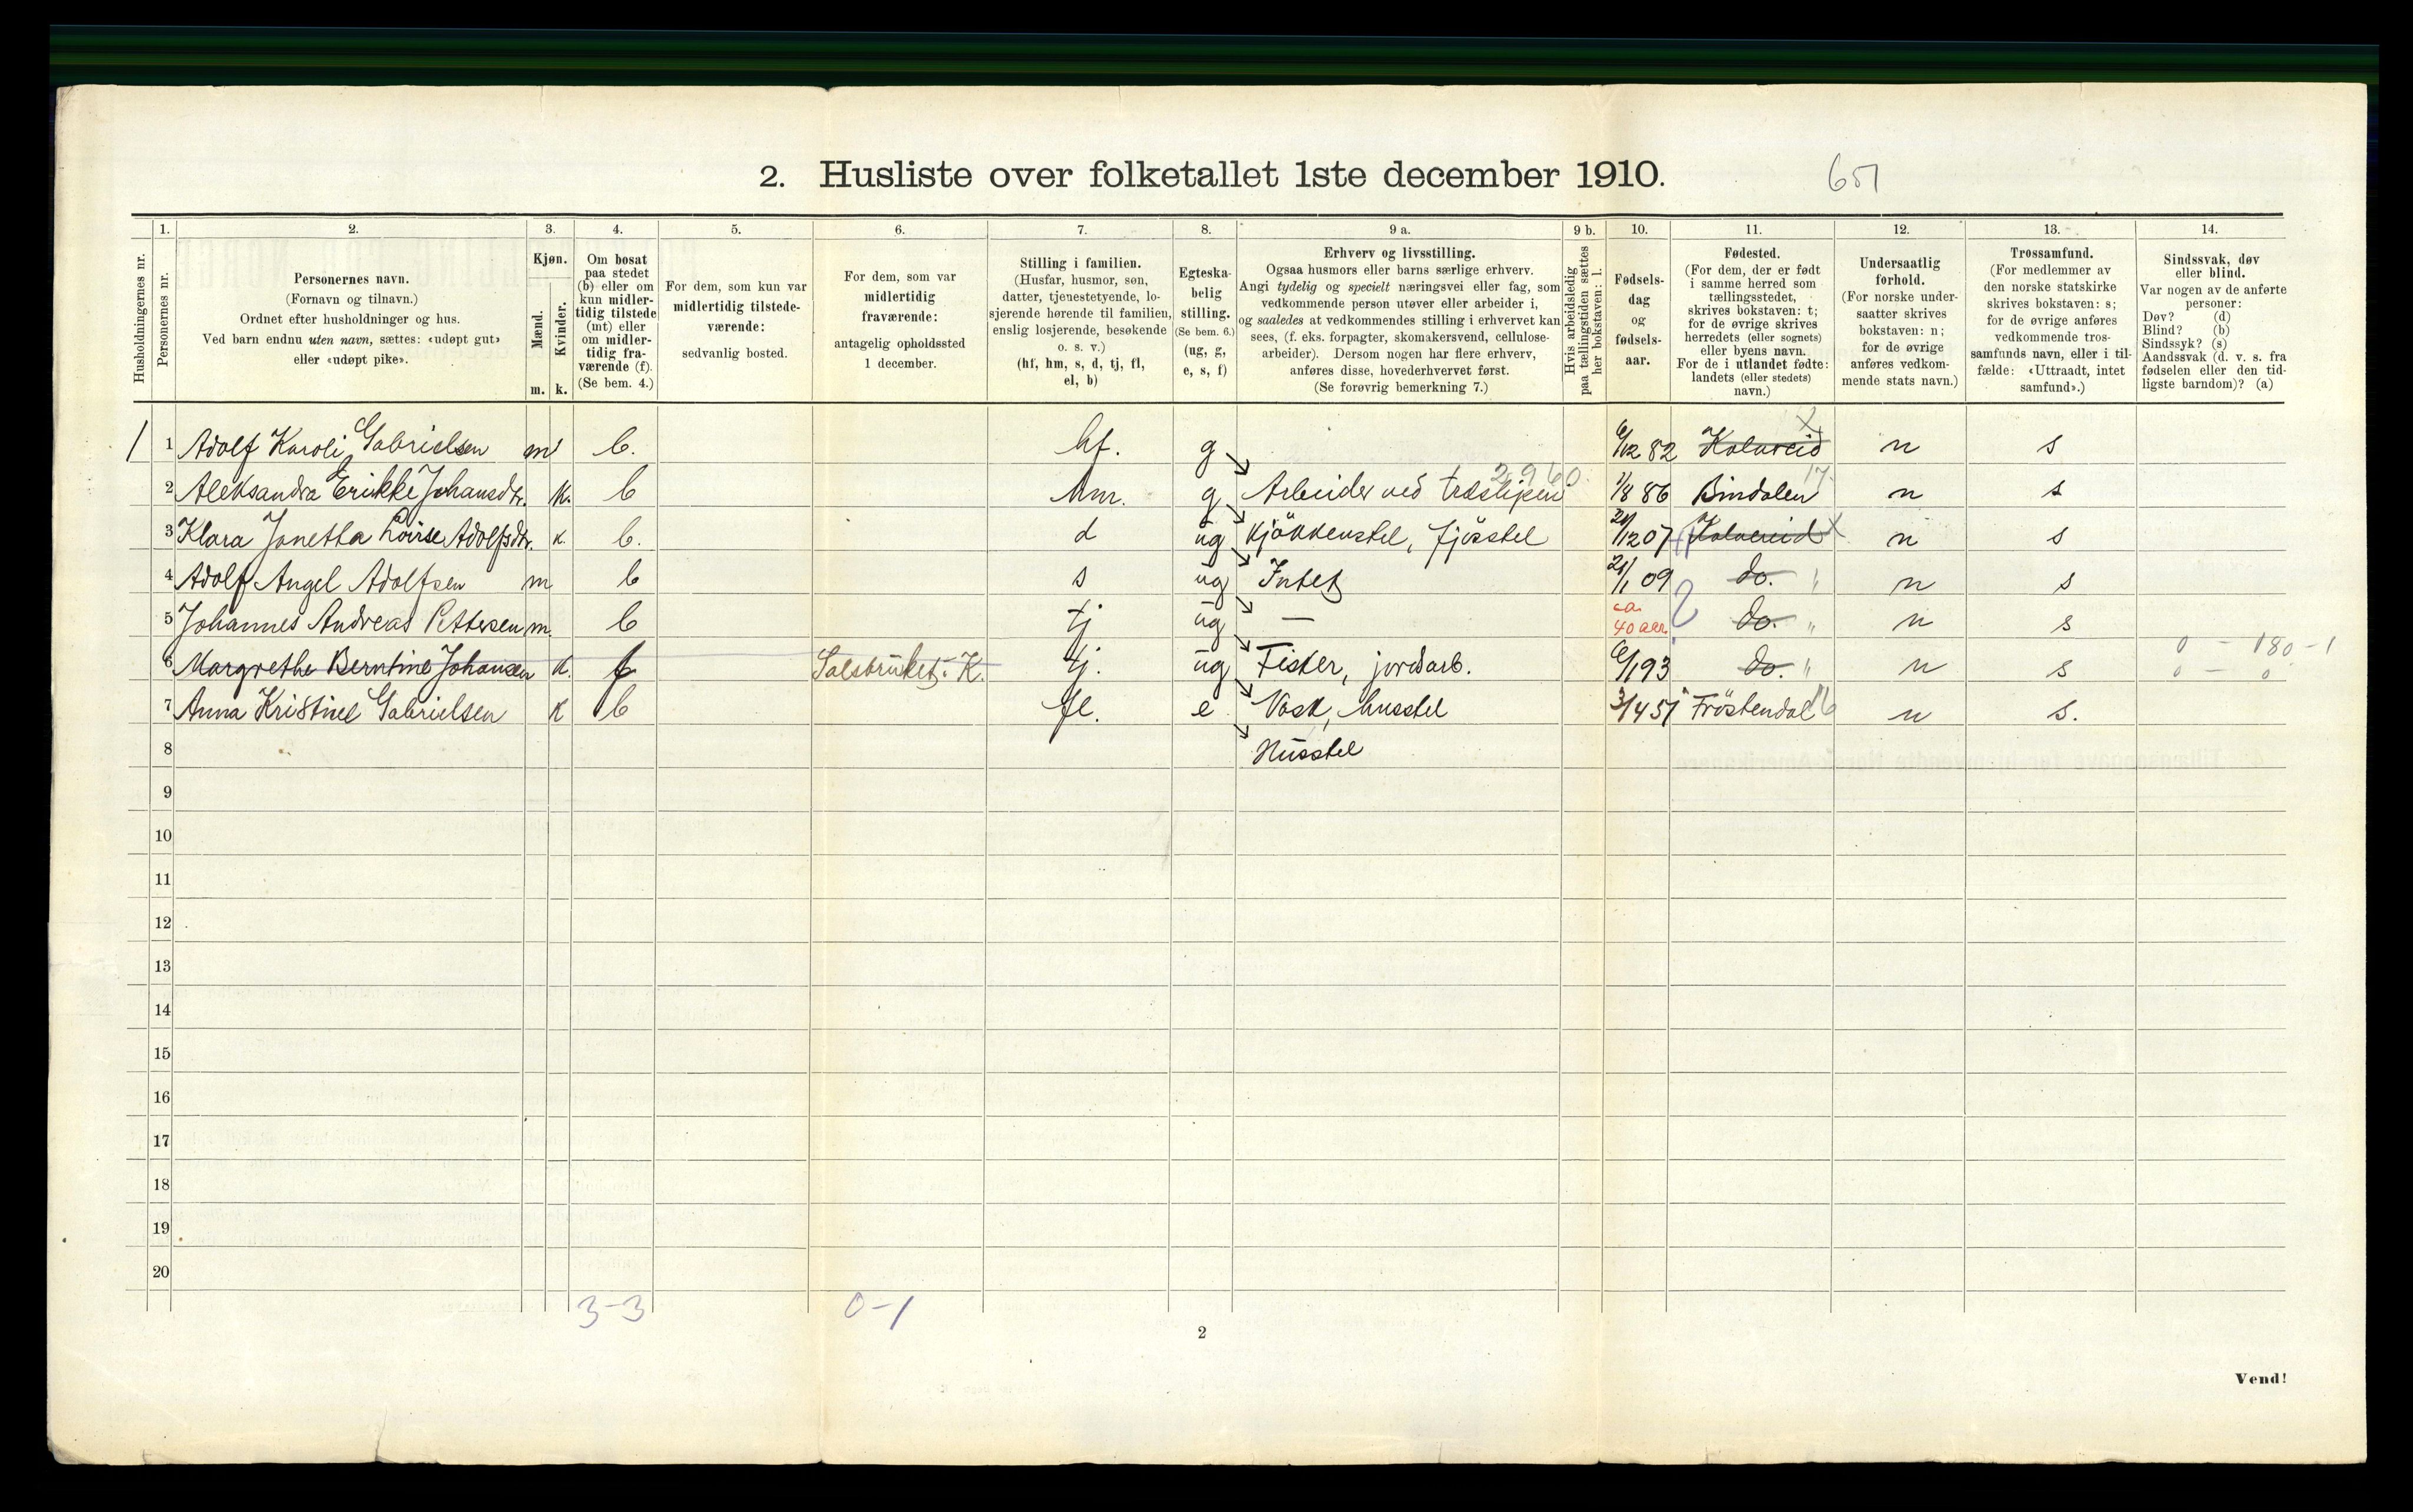 2. Husliste over folketallet 1ste december 1910.
651
Husholdningernes nr.
1. Personernes nr.
2. Personernes navn.
(Fornavn og tilnavn.)
Ordnet efter husholdninger og hus.
Ved barn endnu uten navn, sættes: «udøpt gut»
eller «udøpt pike».
3. Kjøn.
Mænd. m.
Kvinder. k.
4. Om bosat
paa stedet
(b) eller om
kun midler-
tidig tilstede
(mt) eller
om midler-
tidig fra-
værende (f).
(Se bem. 4.)
5. For dem, som kun var
midlertidig tilstede-
værende:
sedvanlig bosted.
6. For dem, som var
midlertidig
fraværende:
antagelig opholdssted
1 december.
7. Stilling i familien.
(Husfar, husmor, søn,
datter, tjenestetyende, lo-
sjerende hørende til familien,
enslig losjerende, besøkende
o. s. v.)
(hf, hm, s, d, tj, fl,
el, b)
8. Egteska-
belig
stilling.
(Se bem. 6.)
(ug, g,
e, s, f)
9 a. Erhverv og livsstilling.
Ogsaa husmors eller barns særlige erhverv.
Angi tydelig og specielt næringsvei eller fag, som
vedkommende person utøver eller arbeider i,
og saaledes at vedkommendes stilling i erhvervet kan
sees, (f. eks. forpagter, skomakersvend, cellulose-
arbeider). Dersom nogen har flere erhverv,
anføres disse, hovederhvervet først.
(Se forøvrig bemerkning 7.)
9 b. Hvis arbeidsledig
paa tællingstiden sættes
her bokstaven: l.
10. Fødsels-
dag
og
fødsels-
aar.
11. Fødested.
(For dem, der er født
i samme herred som
tællingsstedet,
skrives bokstaven: t;
for de øvrige skrives
herredets (eller sognets)
eller byens navn.
For de i utlandet fødte:
landets (eller stedets)
navn.)
12. Undersaatlig
forhold.
(For norske under-
saatter skrives
bokstaven: n;
for de øvrige
anføres vedkom-
mende stats navn.)
13. Trossamfund.
(For medlemmer av
den norske statskirke
skrives bokstaven: s;
for de øvrige anføres
vedkommende tros-
samfunds navn, eller i til-
fælde: «Uttraadt, intet
samfund».)
14. Sindssvak, døv
eller blind.
Var nogen av de anførte
personer:
Døv? (d)
Blind? (b)
Sindssyk? (s)
Aandssvak (d. v. s. fra
fødselen eller den tid-
ligste barndom)? (a)
1 1 Adolf Karoli Gabrielsen m b. hf. g 6/12 82 Kolvereid x n s
2 Aleksandra Erikke Johansdtr. k. b hm. g Arbeider ved træsliperi 2960. 1/8 86 Bindalen 17. n s
3 Klara Jonetha Lovise Adolfsdtr. k. b. d ug Kjøkkenstel, fjøsstel 21/12 07 Kolvereid x n s
4 Adolf Angel Adolfsen m b s ug Intet 21/1 09 do. " n s
5 Johannes Andreas Pettersen m. b tj ug — ca. 40 aar. do. " n s
6 Margrethe Berntine Johansen k. f Salsbruket. K. tj. ug Fisker, jordarb. 6/1 93 do. " n s 0 - 180 - 1
0 - 0
7 Anna Kristine Gabrielsen k b fl. e Vask, husstel 3/4 51 Frøstendal 16 n s.
8 Husstel
9
10
11
12
13
14
15
16
17
18
19
20
3-3 0-1
2
Vend!